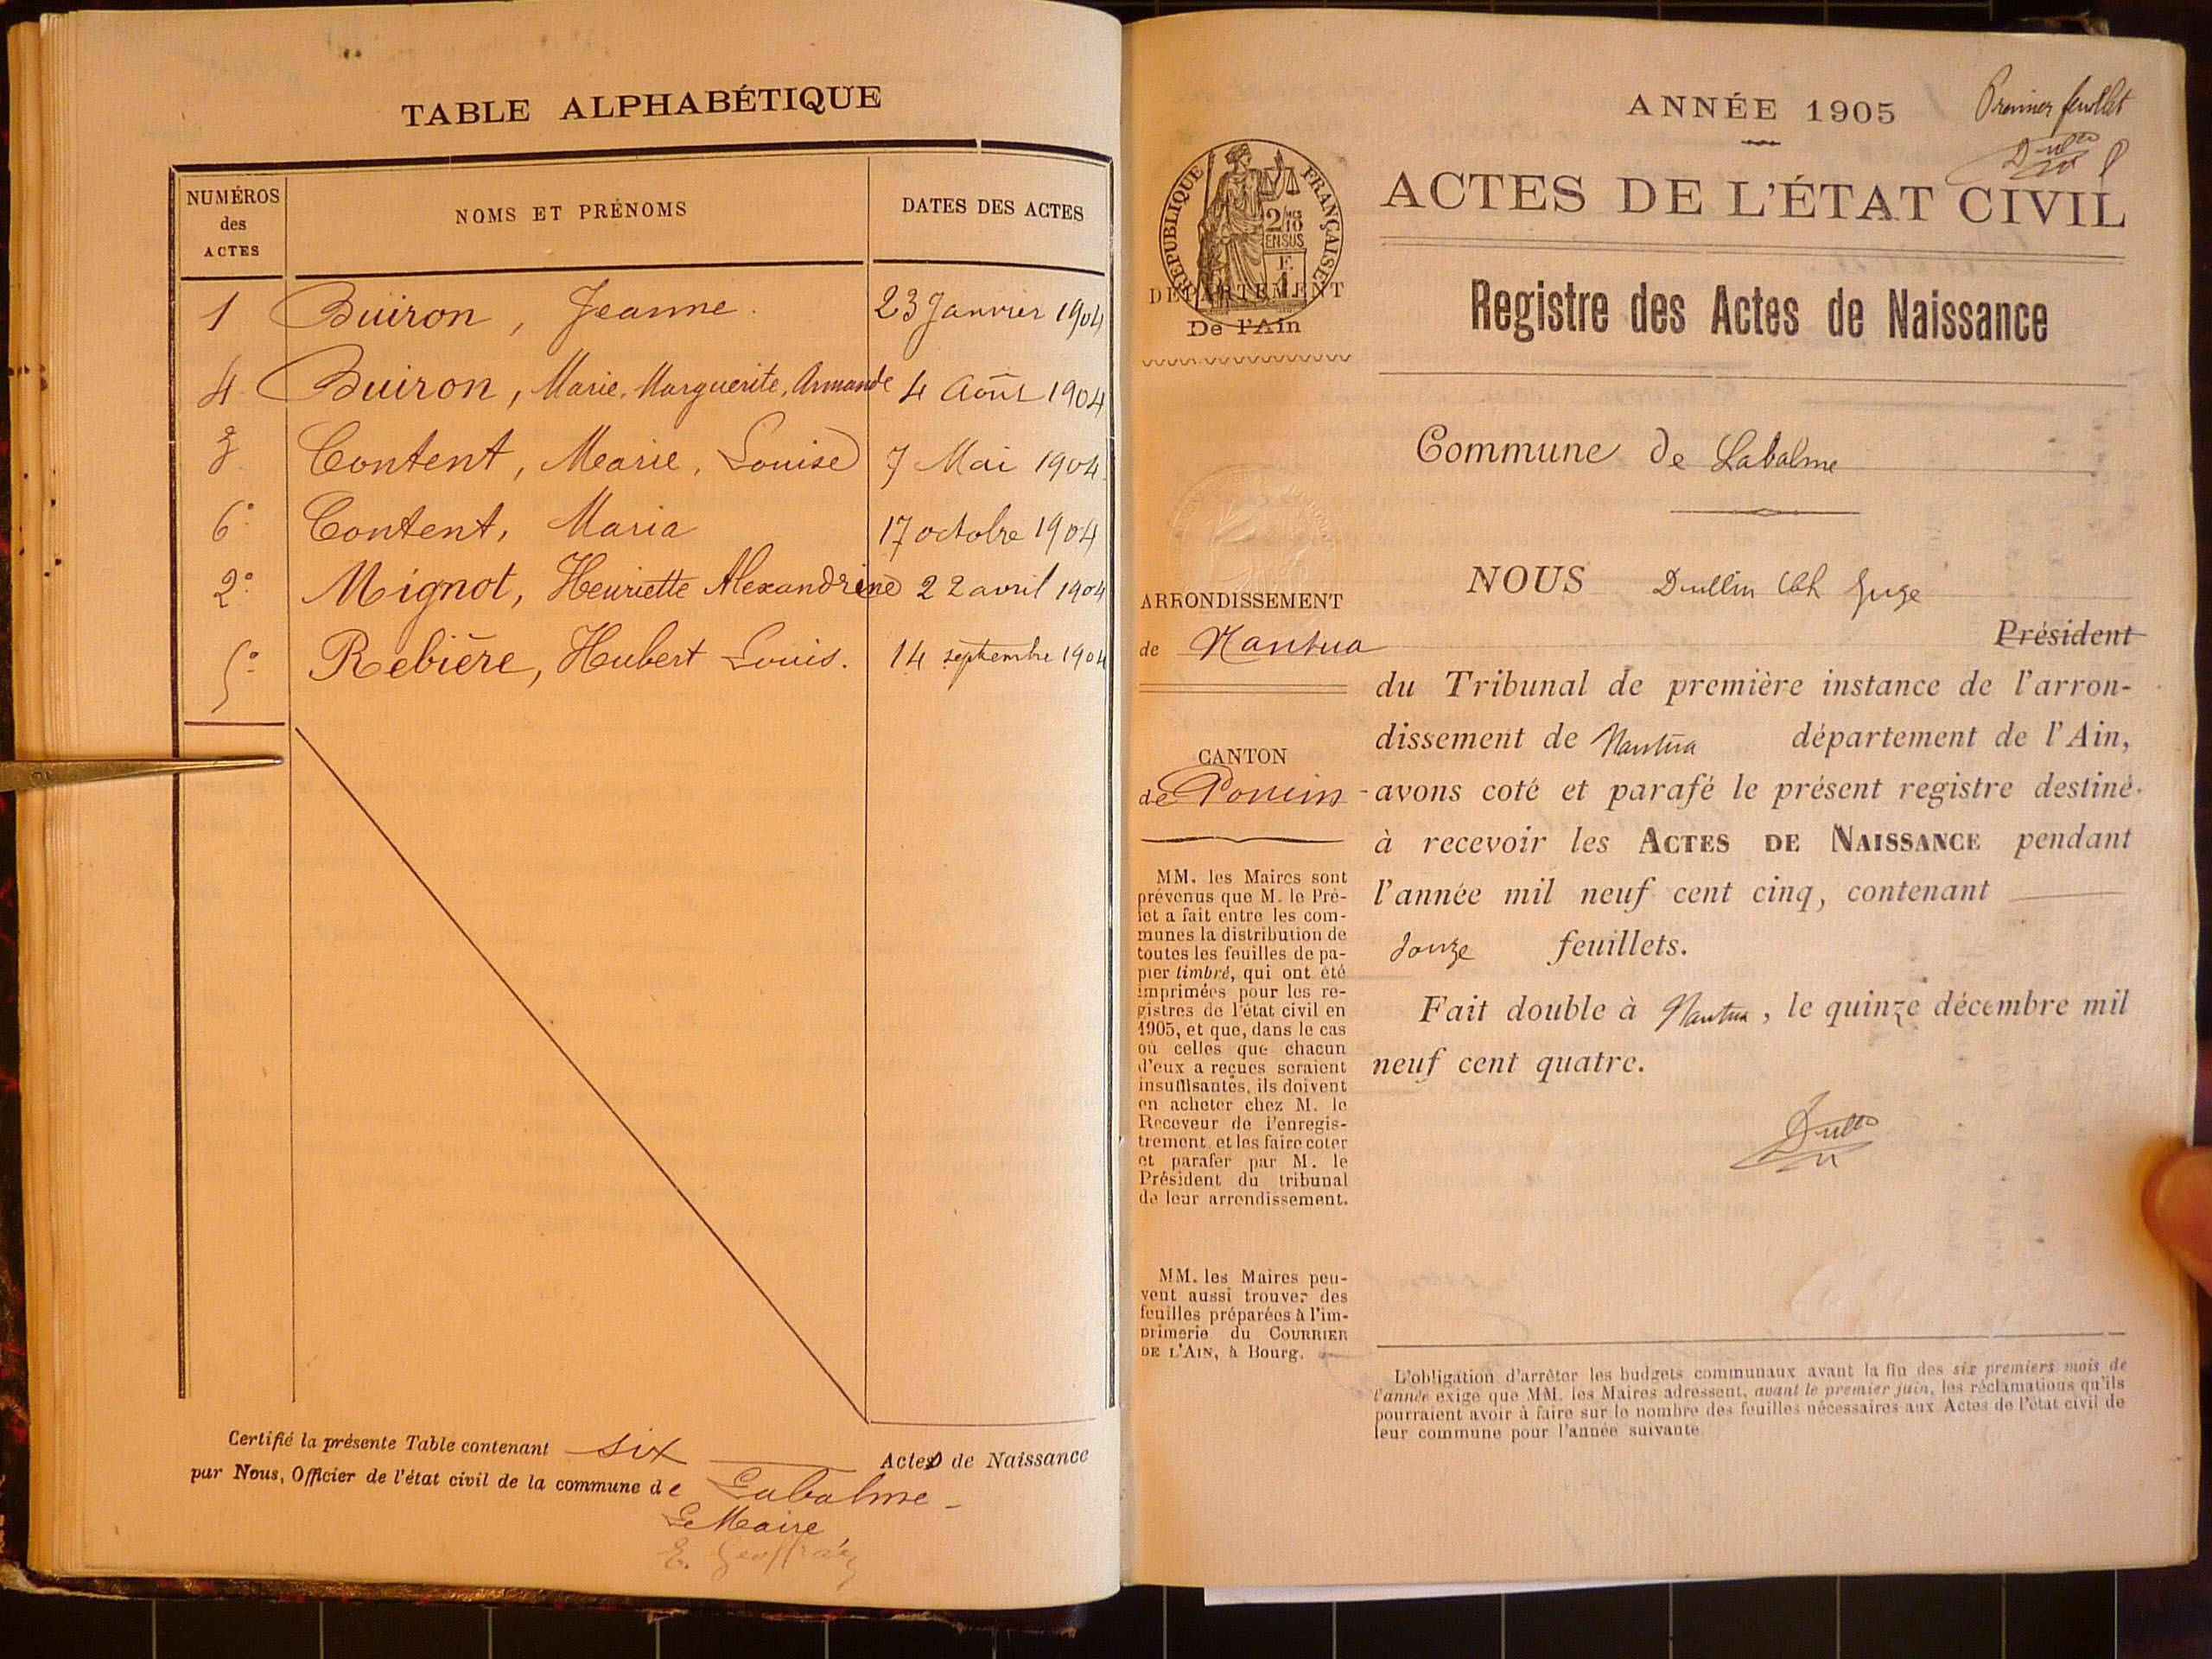 TABLE ALPHABÉTIQUE
NUMÉROS
des
ACTES
NOMS ET PRÉNOMS
DATES DES ACTES
1 Buiron, Jeanne. 23 Janvier 1904
4 Buiron, Marie, Marguerite, Armande 4 Août 1904
3 Content, Marie, Louise 7 Mai 1904
6° Content, Maria 17 octobre 1904
2° Mignot, Henriette Alexandrine 22 avril 1904
5° Rebière, Hubert Louis. 14 septembre 1904
Certifié la présente Table contenant six Actes de Naissance
par Nous, Officier de l'état civil de la commune de Labalme
Le Maire,
E. Geoffray
ANNÉE 1905
Premier feuillet
ACTES DE L'ÉTAT CIVIL
RÉPUBLIQUE FRANÇAISE
2/10 EN SUS
E.
1
DÉPARTEMENT
De l'Ain
Registre des Actes de Naissance
Commune de Labalme
ARRONDISSEMENT
de Nantua
CANTON
de Poncin
MM. les Maires sont
prévenus que M. le Pré-
fet a fait entre les com-
munes la distribution de
toutes les feuilles de pa-
pier timbré, qui ont été
imprimées pour les re-
gistres de l'état civil en
1905, et que, dans le cas
où celles que chacun
d'eux a reçues seraient
insuffisantes, ils doivent
en acheter chez M. le
Receveur de l'enregis-
trement et les faire coter
et parafer par M. le
Président du tribunal
de leur arrondissement.
MM. les Maires peu-
vent aussi trouver des
feuilles préparées à l'im-
primerie du COURRIER
DE L'AIN, à Bourg.
NOUS Dullin Juge
Président
du Tribunal de première instance de l'arron-
dissement de Nantua département de l'Ain,
avons coté et parafé le présent registre destiné
à recevoir les ACTES DE NAISSANCE pendant
l'année mil neuf cent cinq, contenant
douze feuillets.
Fait double à Nantua, le quinze décembre mil
neuf cent quatre.
L'obligation d'arrêter les budgets communaux avant la fin des six premiers mois de
l'année exige que MM. les Maires adressent, avant le premier juin, les réclamations qu'ils
pourraient avoir à faire sur le nombre des feuilles nécessaires aux Actes de l'état civil de
leur commune pour l'année suivante.